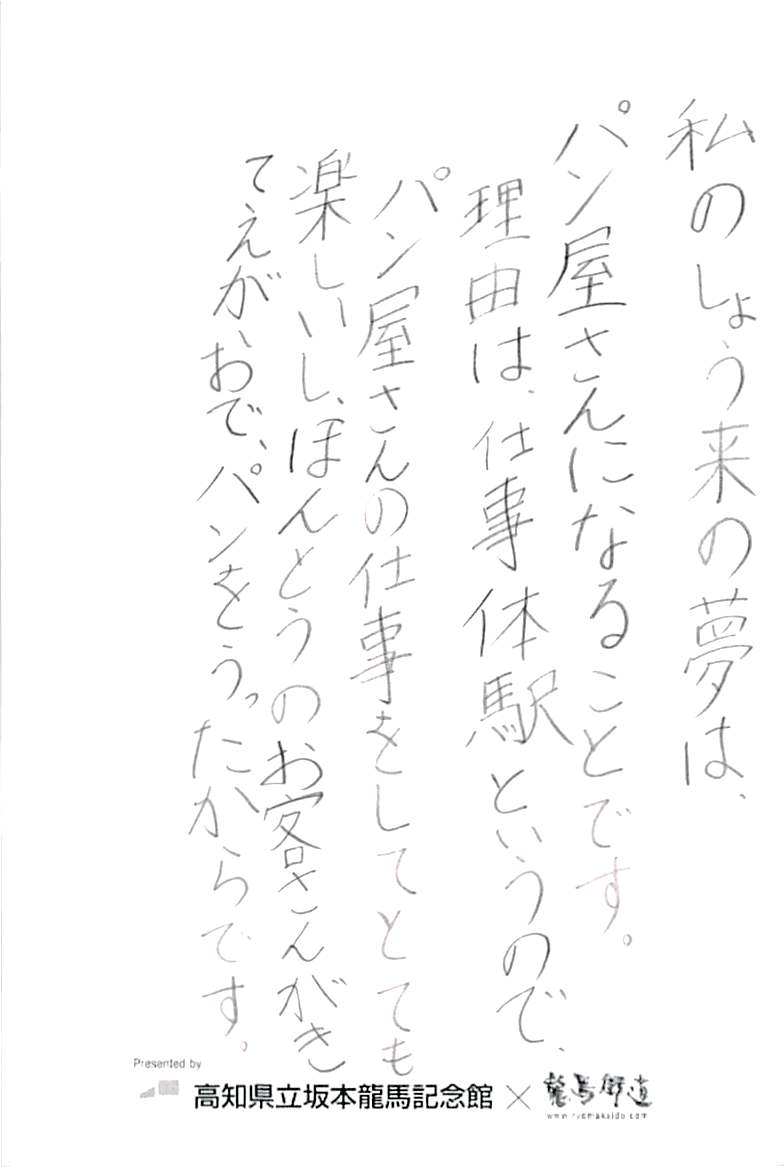 私のしょう来の夢は、
パン屋さんになることです。
理由は、仕事体駅というので、
パン屋さんの仕事をしてとても
楽しいし、ほんとうのお客さんがき
てえがおで、パンをうったからです。
Presented by
高知県立坂本龍馬記念館×龍馬街道
www.ryomakaido.com